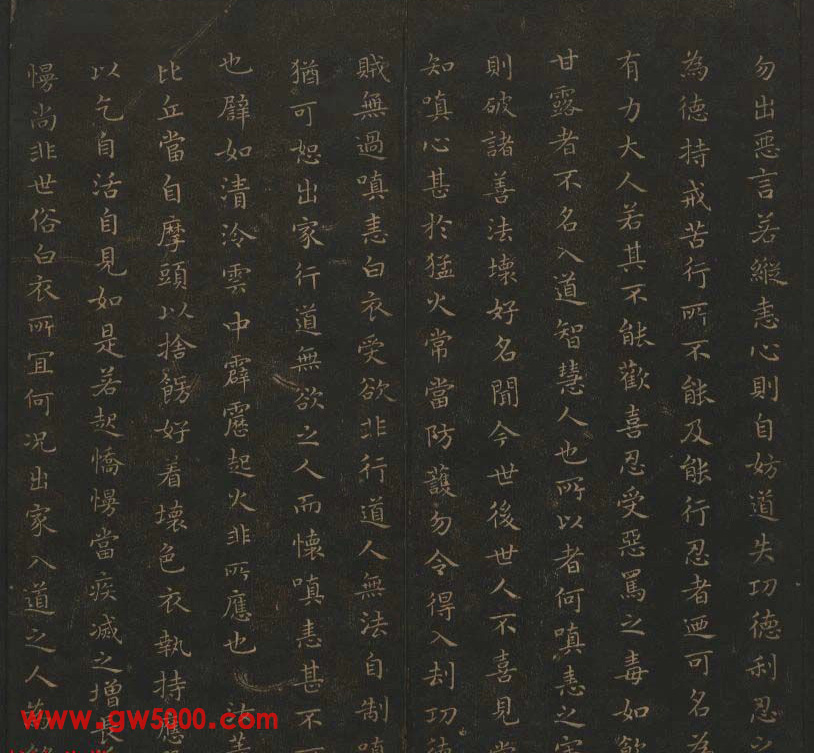 勿出惡言若縱恚心則自妨道失功德利忍
為德持戒苦行所不能及能行忍者迺可名為
有力大人若其不能歡喜忍受惡罵之毒如飲
甘露者不名入道智慧人也所以者何嗔恚之害
則破諸善法壞好名聞今世後世人不喜見當
知嗔心甚於猛火常當防護勿令得入刦功德
賊無過嗔恚白衣受欲非行道人無法自制嗔
猶可恕出家行道無欲之人而懷嗔恚甚不可
也譬如清泠雲中霹靂起火非所應也 汝等
比丘當自摩頭以捨餝好着壞色衣執持應
以乞自活自見如是若起憍慢當疾滅之增長
慢尚非世俗白衣所宜何况出家入道之人
www.gw5000.com